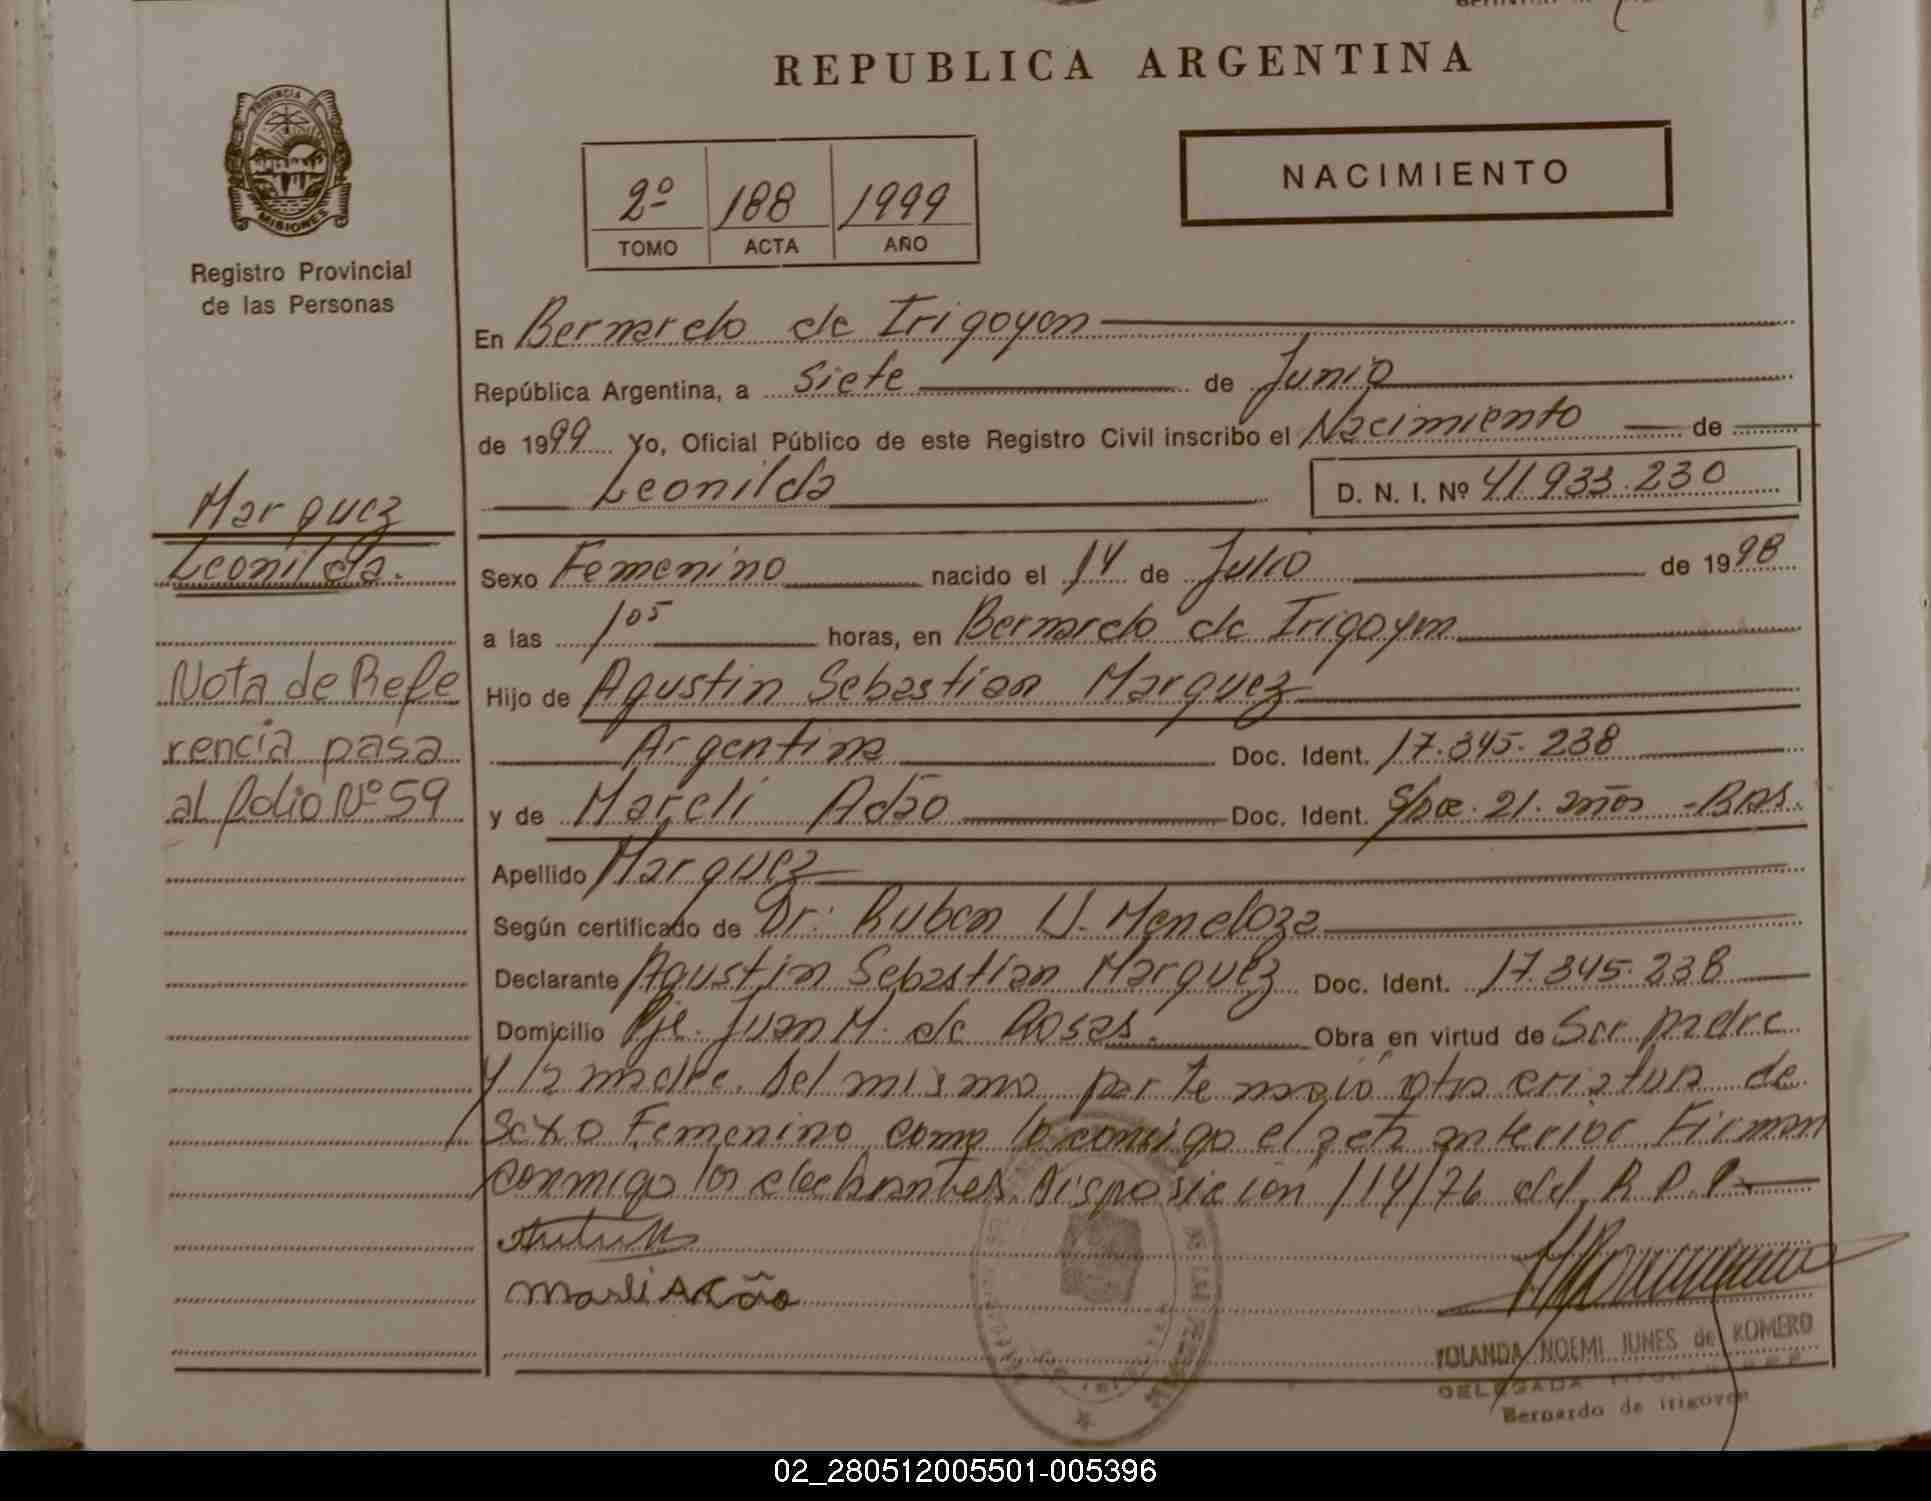 REPUBLICA ARGENTINA
PROVINCIA DE
MISIONES
Registro Provincial
de las Personas
2º 188 1999
TOMO ACTA AÑO
NACIMIENTO
En Bernardo de Irigoyen
República Argentina, a siete de Junio
de 1999 Yo, Oficial Público de este Registro Civil inscribo el Nacimiento de
Leonilda D. N. I. Nº 41.933.230
Marquez
Leonilda.
Sexo Femenino nacido el 14 de Julio de 1998
a las 1 05 horas, en Bernardo de Irigoyen
Nota de Refe
rencia pasa
al folio Nº 59
Hijo de Agustin Sebastian Marquez
Argentina Doc. Ident. 17.345.238
y de Marcli Adão Doc. Ident. 21. años - Bras.
Apellido Marquez
Según certificado de Dr: Ruben U. Mendoza
Declarante Agustin Sebastian Marquez Doc. Ident. 17.345.238
Domicilio Pje. Juan M. de Rosas. Obra en virtud de Ser padre
y la madre. Del mismo parte nació otra criatura de
sexo Femenino como lo consigo el acta anterior Firman
conmigo los declarantes Disposición 114/76 del R.P.P
Marli Adão
YOLANDA NOEMI JUNES de ROMERO
DELEGADA TITULAR
Bernardo de Irigoyen
02_280512005501-005396